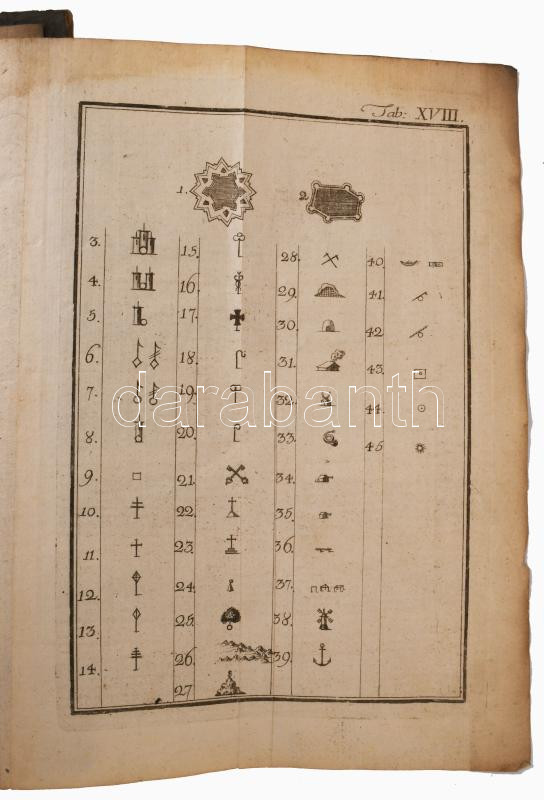 Tab: XVIII.
1.
2.
3.
4.
5.
6.
7.
8.
9.
10.
11.
12.
13.
14.
15.
16.
17.
18.
19.
20.
21.
22.
23.
24.
25.
26.
27
28.
29.
30.
31.
32.
33.
34.
35.
36.
37.
38.
39.
40.
41.
42.
43.
44.
45.
darabanth